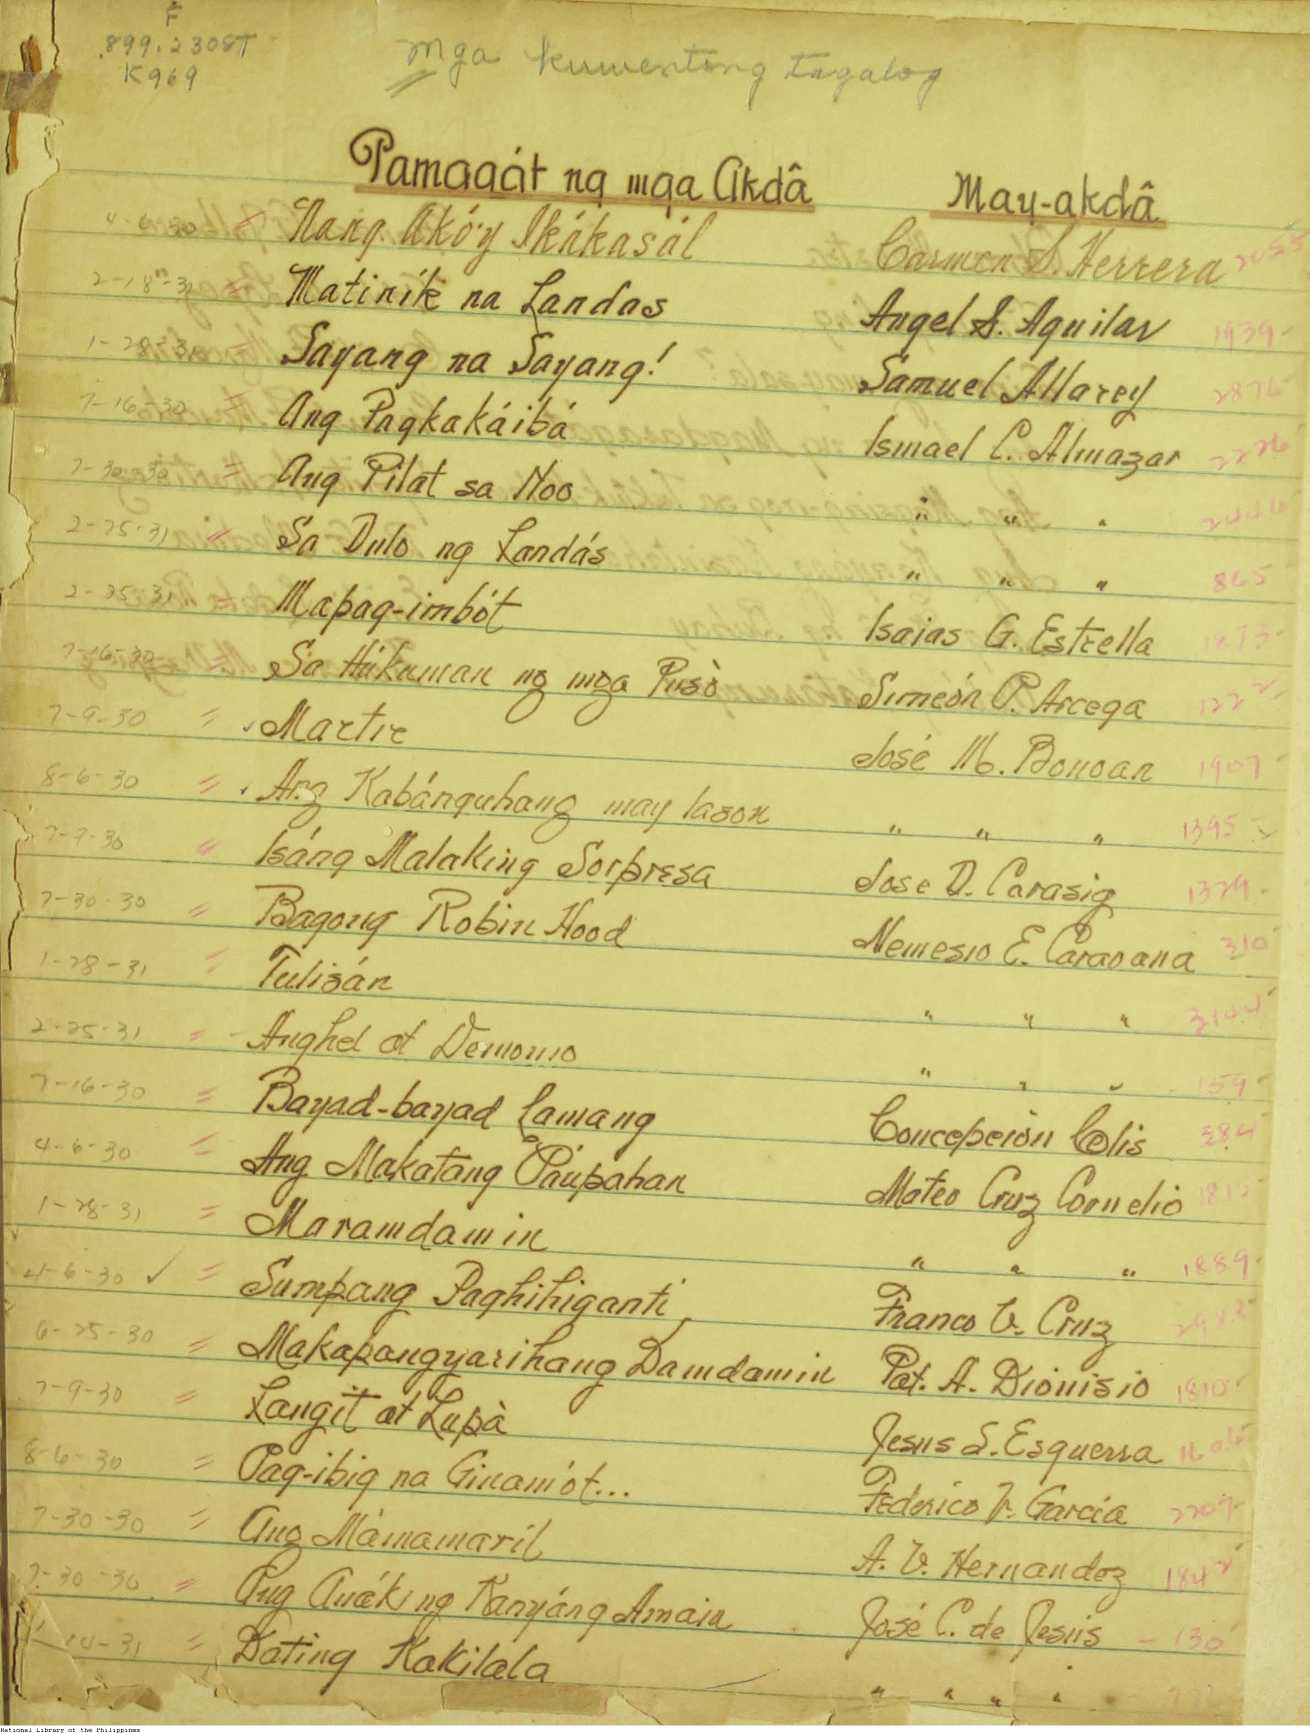 F
899.230ST
K969
mga kuwentong tagalog
Pamagát ng mga Akdâ May-akdâ
4-6-30 Nang Akó'y Ikákasál Carmen S. Herrera 2055
2-18-31 Matiník na Landas Angel S. Aguilar 1939-
1-28-31 Sayang na Sayang! Samuel Allarey 2876
7-16-30 Ang Pagkakáibá Ismael C. Almazar 2226
7-30-30 = Ang Pilat sa Noo " " " 2446
2-25-31 Sa Dulo ng Landás " " " 865
2-25-31 Mapag-imbót Isaias G. Estrella 1873-
7-16-30 = Sa Húkuman ng mga Pusò Simeón P. Arcega
7-9-30 = Martir José M. Bonoan 1907
8-6-30 = Ang Kabánguhang may lason " " " 1395
7-9-30 = Isáng Malaking Sorpresa Jose D. Carasig 1329-
7-30-30 = Bagong Robin Hood Nemesio E. Caraoana 310
1-28-31 = Tulisán " " "
2-25-31 = Anghel at Demonio " " " 159
7-16-30 = Bayad-bayad Lamang Concepción Colis 384
4-6-30 = Ang Makatang Páupahan Mateo Cruz Cornelio
1-28-31 = Maramdamin " " " 1889-
4-6-30 ✓ = Sumpang Paghihiganti Franco V. Cruz
6-25-30 = Makapangyarihang Damdamin Pat. A. Dionisio 1810
7-9-30 = Langit at Lupà Jesus S. Esquerra
8-6-30 = Pag-ibig na Ginamót... Federico V. Garcia 2207-
7-30-30 = Ang Mámamaril A. V. Hernandez
7-30-30 = Ang Anák ng Kanyáng Amain José C. de Jesús - 130
14-31 = Dating Kakilala " " " "
National Library of the Philippines